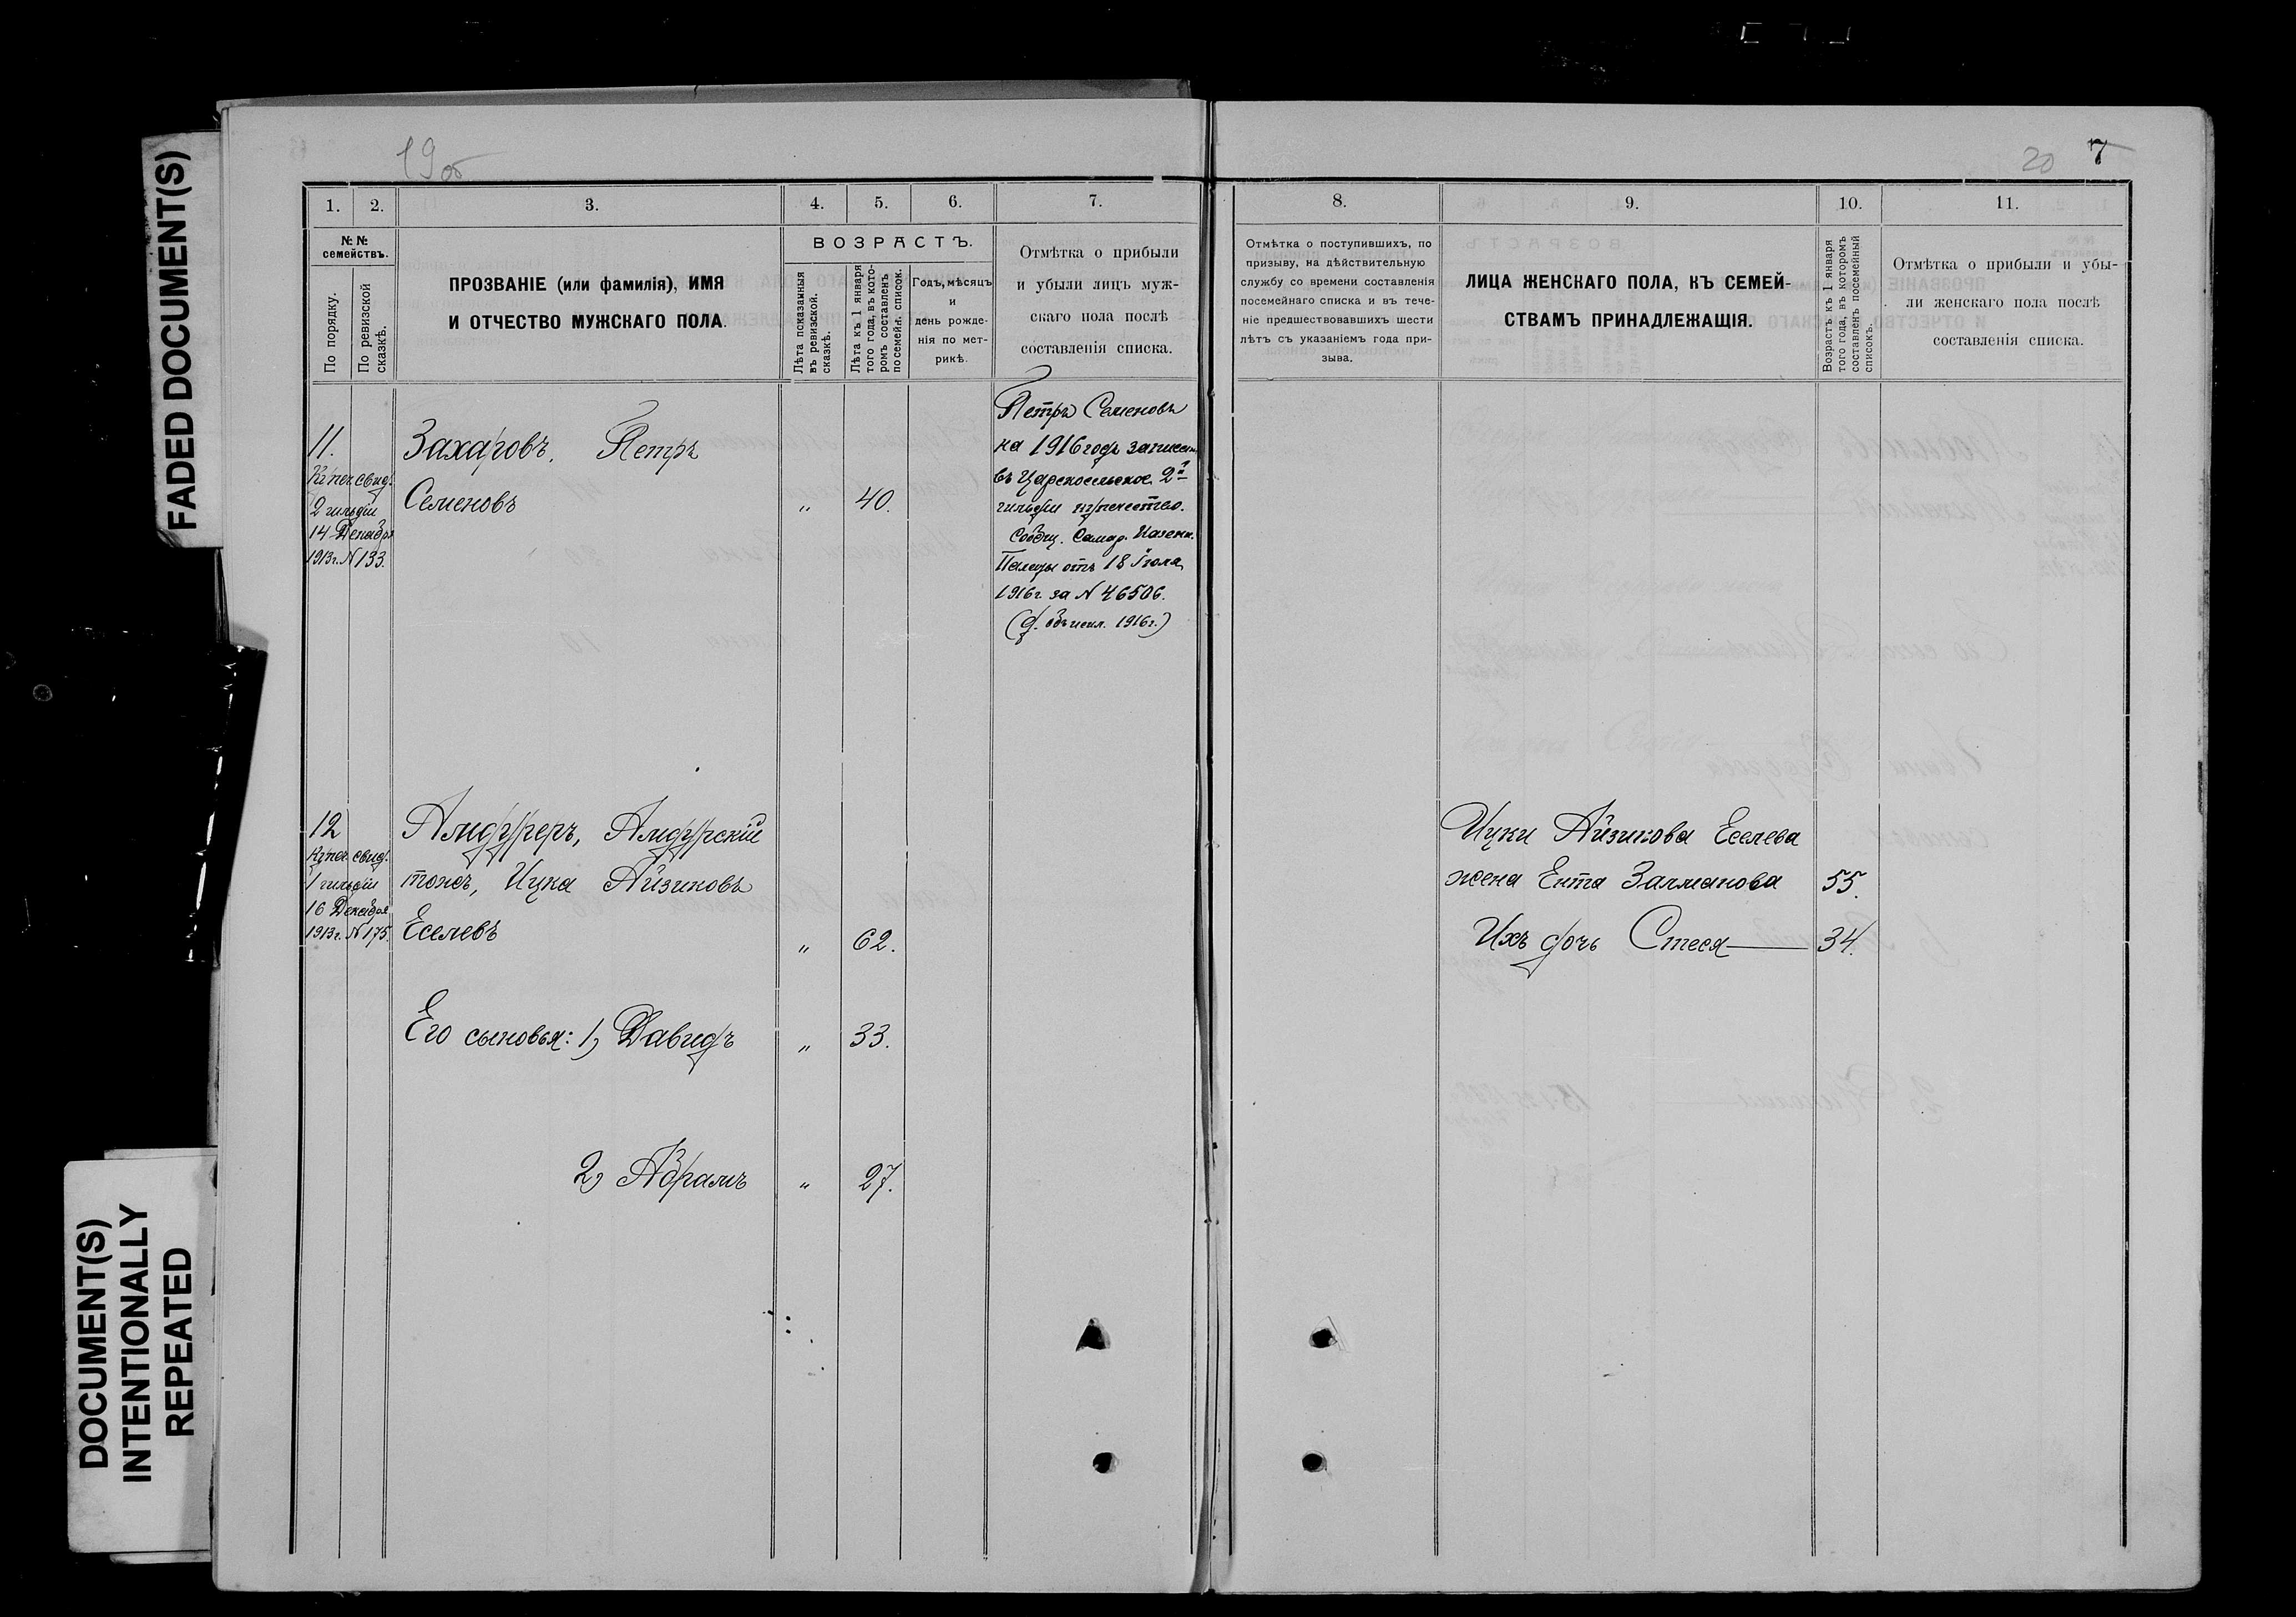 FADED DOCUMENT(S)
DOCUMENT(S)
INTENTIONALLY
REPEATED
19об
20 7
1. 2. 3. 4. 5. 6. 7.
№№ семействъ.
По порядку.
По ревизской сказкѣ.
ПРОЗВАНІЕ (или фамилія), ИМЯ
И ОТЧЕСТВО МУЖСКАГО ПОЛА.
ВОЗРАСТЪ.
Лѣта показанныя
въ ревизской.
сказкѣ.
Лѣта къ 1 января
того года, въ кото-
ромъ составленъ
посемейн. списокъ.
Годъ, мѣсяцъ
и
день рожде-
нія по мет-
рикѣ.
Отмѣтка о прибыли
и убыли лицъ муж-
скаго пола послѣ
составленія списка.
11.
Купеч. свид.
2 гильдіи
14 Декабря
1913г. N 133.
Захаровъ, Петръ
Семеновъ " 40.
Петръ Семеновъ
на 1916 годъ записанъ
въ Царскосельское 2й
гильдіи купечество.
Сообщ. Самар. Казенн.
Палаты отъ 18 Іюля
1916г. за N 46506.
(д. объ искл. 1916г.)
12
Купеч. свид.
1 гильдіи
16 Декабря
1913г. N 175.
Амдурреръ, Амдурскій
тожъ, Ицка Айзиковъ
Еселевъ " 62.
Его сыновья: 1) Давидъ " 33.
2) Абрамъ " 27.
8. 9. 10. 11.
Отмѣтка о поступившихъ, по
призыву, на дѣйствительную
службу со времени составленія
посемейнаго списка и въ тече-
ніе предшествовавшихъ шести
лѣтъ съ указаніемъ года при-
зыва.
ЛИЦА ЖЕНСКАГО ПОЛА, КЪ СЕМЕЙ-
СТВАМЪ ПРИНАДЛЕЖАЩІЯ.
Возрастъ къ 1 января
того года, въ которомъ
составленъ посемейный
списокъ.
Отмѣтка о прибыли и убы-
ли женскаго пола послѣ
составленія списка.
Ицки Айзикова Еселева
жена Ента Залманова 55.
Ихъ дочь Стеся 34.